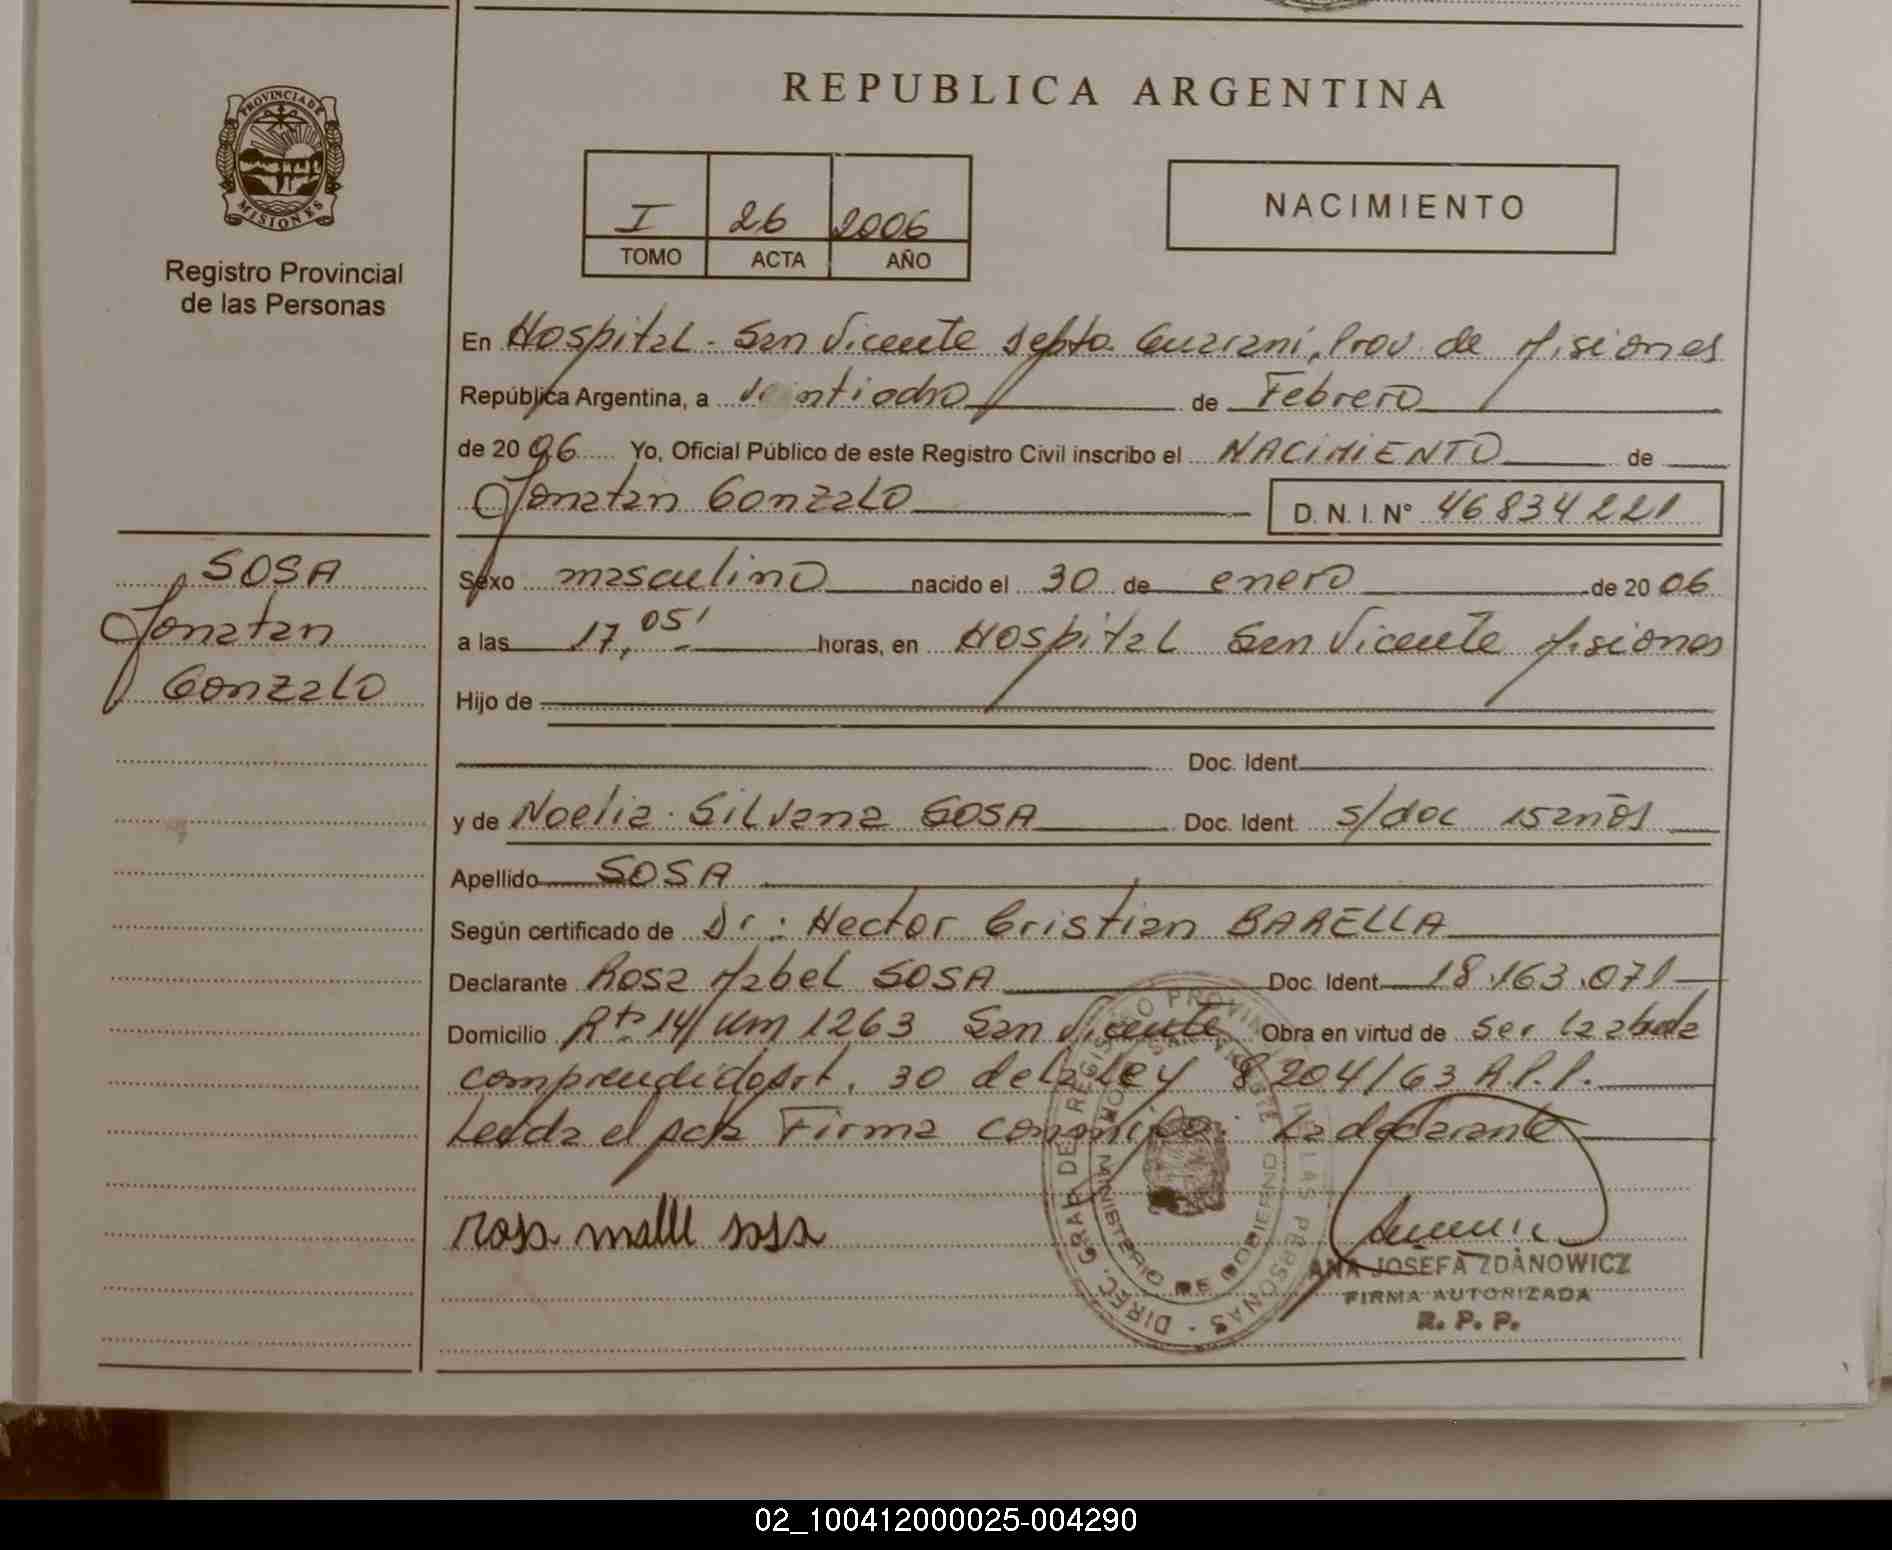 REPUBLICA ARGENTINA
PROVINCIA DE
MISIONES
Registro Provincial
de las Personas
I 26 2006
TOMO ACTA AÑO
NACIMIENTO
En Hospital - San Vicente depto. Guarani, Prov. de Misiones
República Argentina, a veintiocho de Febrero
de 20 06 Yo, Oficial Público de este Registro Civil inscribo el NACIMIENTO de
Jonatan Gonzalo D. N. I. N° 46834221
SOSA
Jonatan
Gonzalo
Sexo masculino nacido el 30 de enero de 20 06
a las 17, 05' horas, en Hospital San Vicente Misiones
Hijo de
Doc. Ident.
y de Noelia Silvana SOSA Doc. Ident. s/doc 15 años
Apellido SOSA
Según certificado de Dr: Hector Cristian BARELLA
Declarante Rosa Mabel SOSA Doc. Ident. 18.163.071
Domicilio Rta 14/ Km 1263 San Vicente Obra en virtud de ser la abuela
comprendido art. 30 de la Ley 8204/63 R.P.P.
Leida el acta Firma conmigo: La declarante
rosa sosa
DIREC. GRAL DE REGISTRO PROVINCIAL DE LAS PERSONAS
MINISTERIO DE GOBIERNO
ANA JOSEFA ZDANOWICZ
FIRMA AUTORIZADA
R. P. P.
02_100412000025-004290